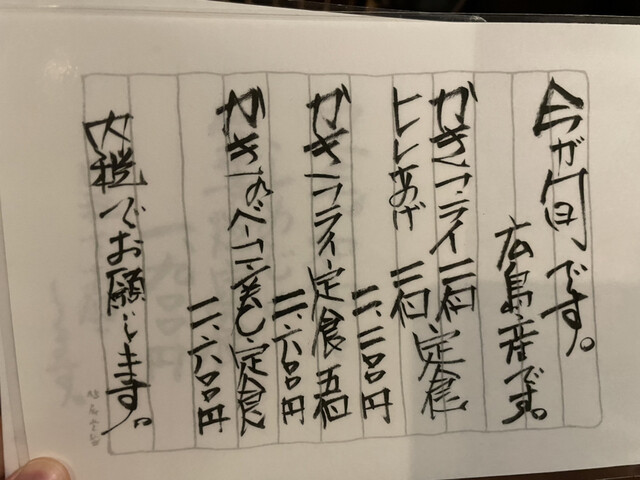 今が旬です。
広島産です。
かきフライ三個、定食
ヒレあげ 三個
二、二〇〇円
かきフライ定食五個
二、六〇〇円
かきのベーコン巻き定食
二、六〇〇円
内税でお願いします。